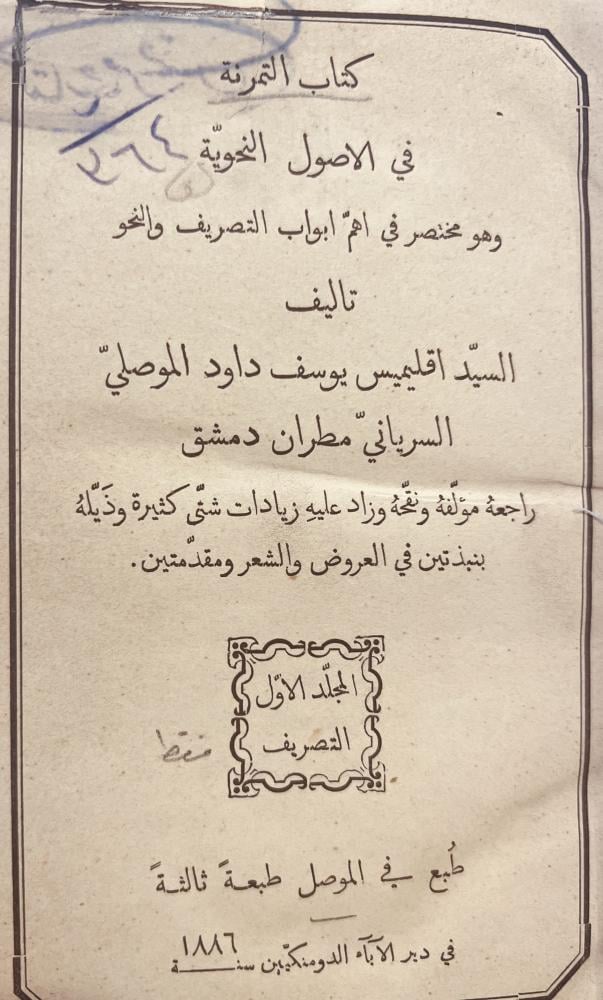 كتاب التمرنة
في الاصول النحويّة
وهو مختصر في اهمّ ابواب التصريف والنحو
تاليف
السيّد اقليميس يوسف داود الموصليّ
السريانيّ مطران دمشق
راجعهُ مؤلّفهُ ونقّحهُ وزاد عليهِ زيادات شتّى كثيرة وذَيّلهُ
بنبذتين في العروض والشعر ومقدّمتين.
المجلّد الاوّل
التصريف
فقط
طُبع في الموصل طبعةً ثالثةً
في دير الآبآء الدومنكيّين سنة ١٨٨٦